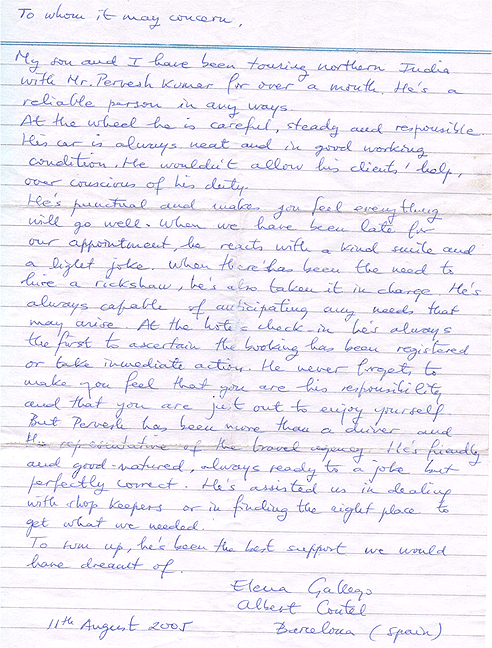 To whom it may concern,
My son and I have been touring northern India
with Mr. Pervesh Kumar for over a month. He's a
reliable person in any ways.
At the wheel he is careful, steady and responsible.
His car is always neat and in good working
condition. He wouldn't allow his clients' help,
over conscious of his duty.
He's punctual and makes you feel everything
will go well. When we have been late for
our appointment, he reacts with a kind smile and
a light joke. When there has been the need to
hire a rickshaw, he's also taken it in charge. He's
always capable of anticipating any needs that
may arise. At the hotel's check-in he's always
the first to ascertain the booking has been registered
or take inmediate action. He never forgets to
make you feel that you are his responsibility
and that you are just out to enjoy yourself.
But Pervesh has been more than a driver and
the representative of the travel agency. He's friendly
and good-natured, always ready to a joke but
perfectly correct. He's assisted us in dealing
with shop keepers or in finding the right place to
get what we needed.
To sum up, he's been the best support we would
have dreamt of.
Elena Gallego
Albert
11th August 2005 Barcelona (Spain)